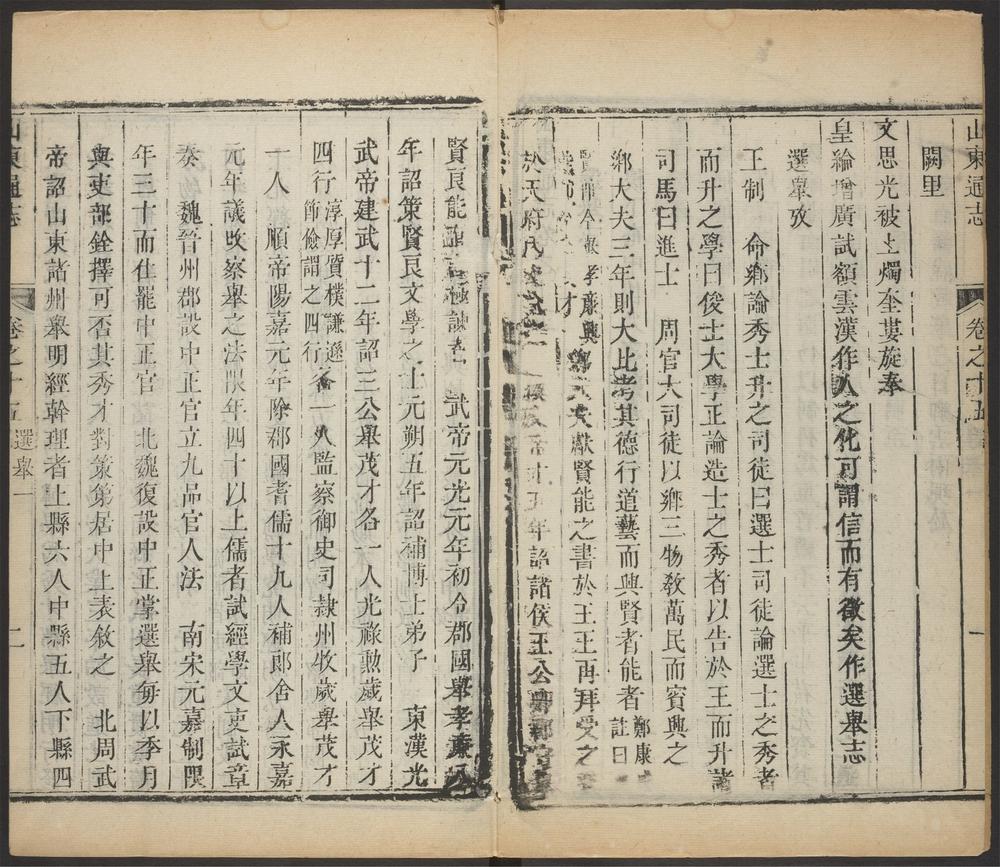 山東通志
卷之十五
一
闕里
文思光被上燭奎婁旋奉
皇綸增廣試額雲漢作人之化可謂信而有徵矣作選舉志
選舉攷
王制　命鄉論秀士升之司徒曰選士司徒論選士之秀者
而升之學曰俊士大學正論造士之秀者以告於王而升諸
司馬曰進士　周官大司徒以鄉三物敎萬民而賓興之
鄉大夫三年則大比考其德行道藝而興賢者能者 鄭康
註曰
賢者 今舉孝廉興
才 獻賢能之書於王王再拜受之
於天府 年詔諸侯王公
賢良能 武帝元光元年初令郡國舉孝廉
年詔策賢良文學之士元朔五年詔補博士弟子　東漢光
武帝建武十二年詔三公舉茂才各一人光祿勳歲舉茂才
四行 淳厚質樸謙遜
節儉謂之四行 一人監察御史司隸州牧歲舉茂才
一人　順帝陽嘉元年除郡國耆儒十九人補郎舍人永嘉
元年議改察舉之法限年四十以上儒者試經學文吏試章
奏　魏晉州郡設中正官立九品官人法　南宋元嘉制限
年三十而仕罷中正官　北魏復設中正掌選舉每以季月
與吏部銓擇可否其秀才對策第居中上表敘之　北周武
帝詔山東諸州舉明經幹理者上縣六人中縣五人下縣四
山東通志
卷之十五
選舉一
二